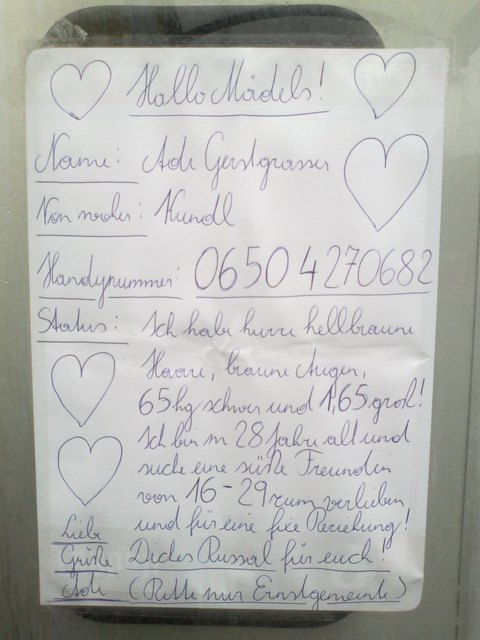 Hallo Mädels!
Name: Adi Gerstgrasser
Von woher: Kundl
Handynummer: 0650 4270682
Status: Ich habe kurze hellbraune
Haare, braune Augen,
65kg schwer und 1,65 groß!
Ich bin m 28 Jahre alt und
suche eine süße Freundin
von 16-29 zum verlieben
und für eine fixe Beziehung!
Liebe
Grüße Dickes Bussal für euch!
Adi (Bitte nur Ernstgemeinte)